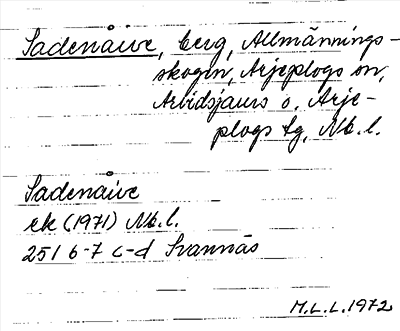 Sadenåive, berg, Allmännings-
skogen, Arjeplogs sn,
Arvidsjaurs o. Arje-
plogs tg, Nb. l.
Sadenåive
ek (1971) Nb. l.
25I 6-7 c-d Svannäs
M.L.L. 1972